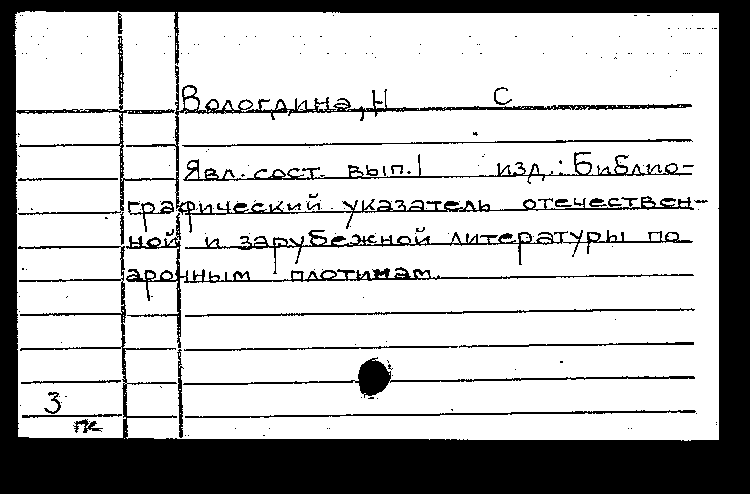 Вологдина, Н С
Явл. сост. вып. 1 изд.: Библио-
графический указатель отечествен-
ной и зарубежной литературы по
арочным плотинам.
3
пс